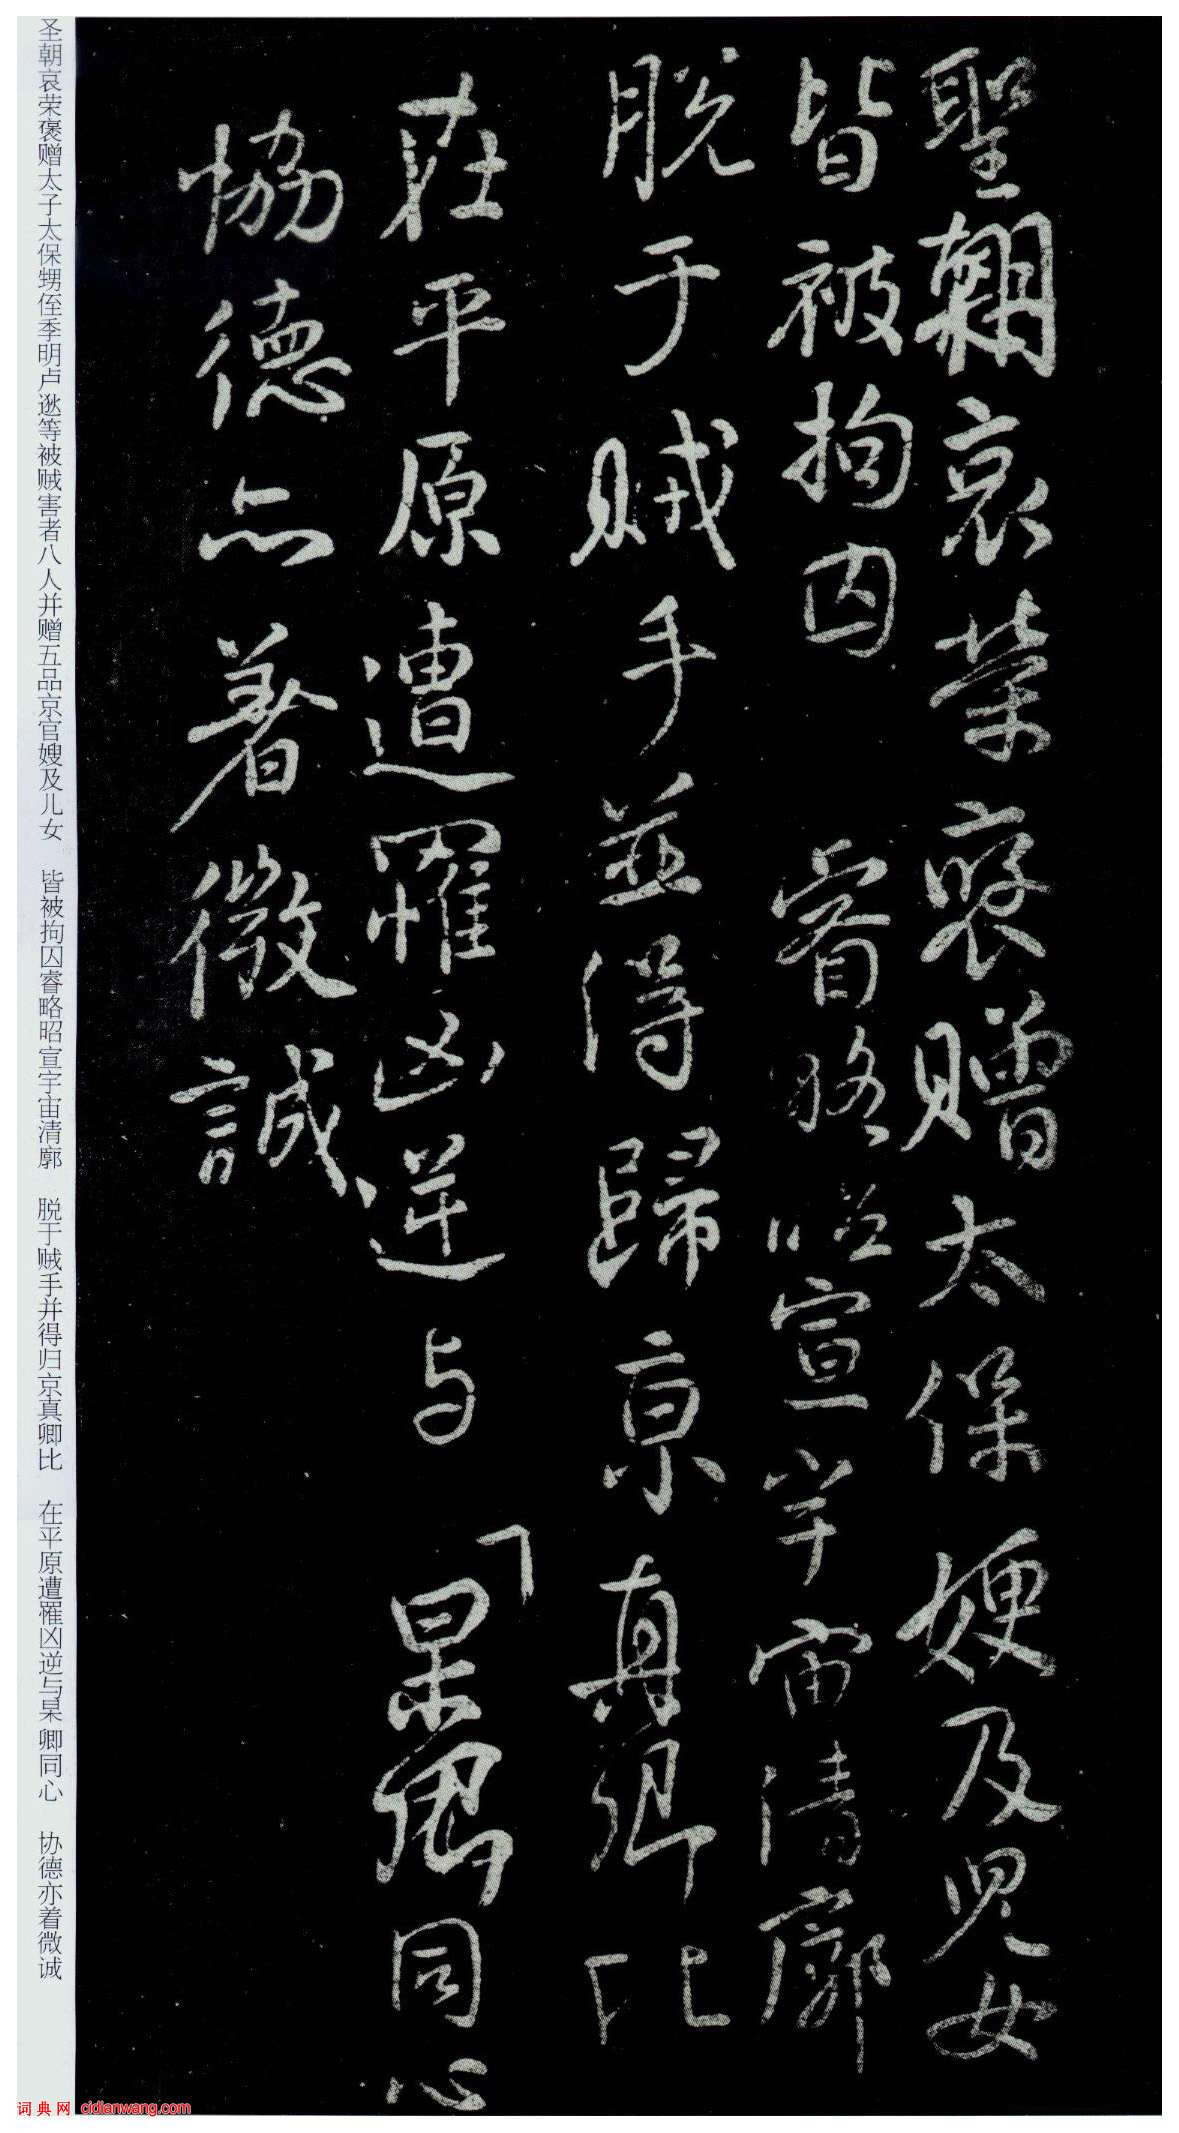 聖朝哀榮褒贈太保嫂及兒女
皆被拘囚 睿略昭宣宇宙清廓
脱于賊手並得歸京真卿比
在平原遭罹凶逆与 杲卿同心
協德亦著微誠
圣朝哀荣褒赠太子太保甥侄季明卢逖等被贼害者八人并赠五品京官嫂及儿女 皆被拘囚睿略昭宣宇宙清廓 脱于贼手并得归京真卿比 在平原遭罹凶逆与杲卿同心 协德亦着微诚
词典网 cidianwang.com